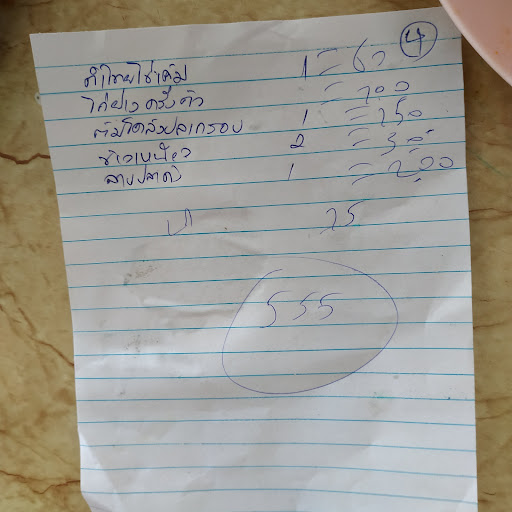 4
ตำไทยไข่เค็ม 1 = 60
ไก่ย่างครึ่งตัว = 100
ต้มโคล้งปลากรอบ 1 = 150
ข้าวเหนียว 2 = 20
ลาบปลาดุก 1 = 200
น้ำ 25
555